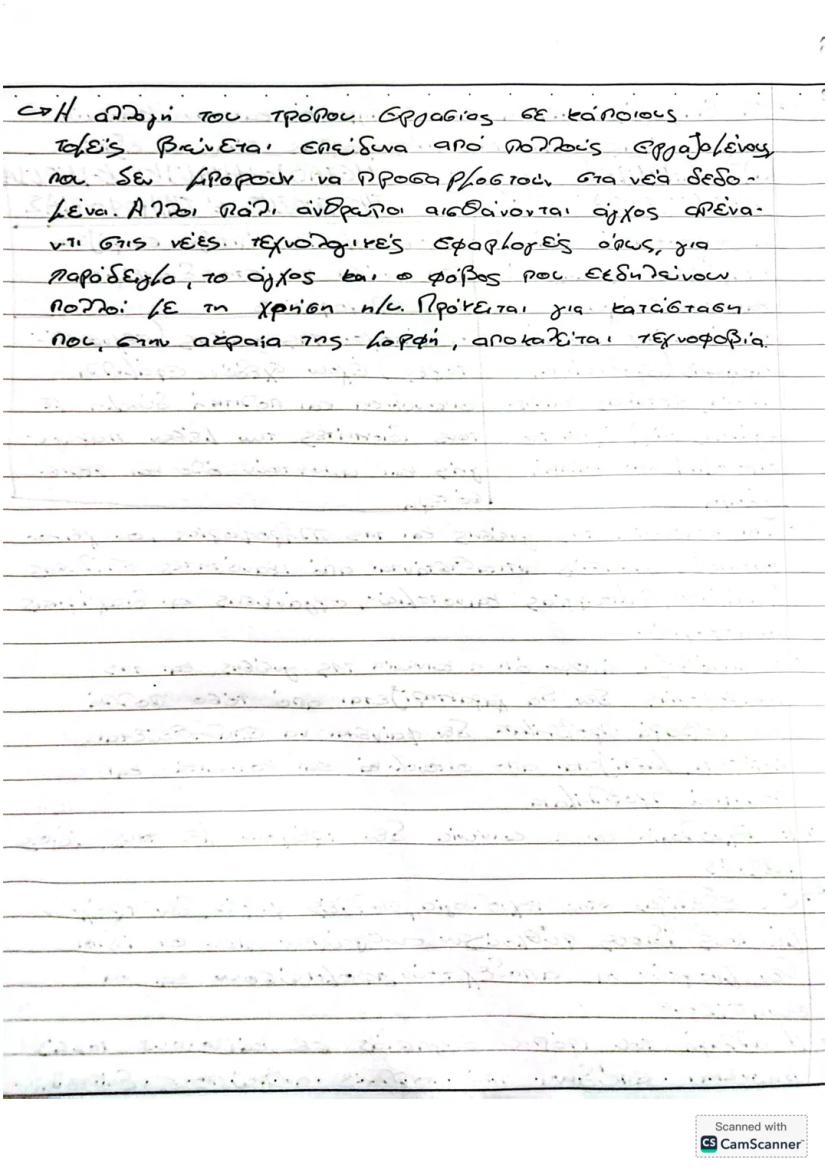 ↪ Η αλλαγή του τρόπου εργασίας σε κάποιους
τομείς βιώνεται επώδυνα από πολλούς εργαζομένους
που δεν μπορούν να προσαρμοστούν στα νέα δεδο-
μένα. Άλλοι πάλι άνθρωποι αισθάνονται άγχος απένα-
ντι στις νέες τεχνολογικές εφαρμογές όπως, για
παράδειγμα, το άγχος και ο φόβος που εκδηλώνουν
πολλοί με τη χρήση η/υ. Πρόκειται για κατάσταση
που, στην ακραία της μορφή, αποκαλείται τεχνοφοβία.
Scanned with
CS CamScanner